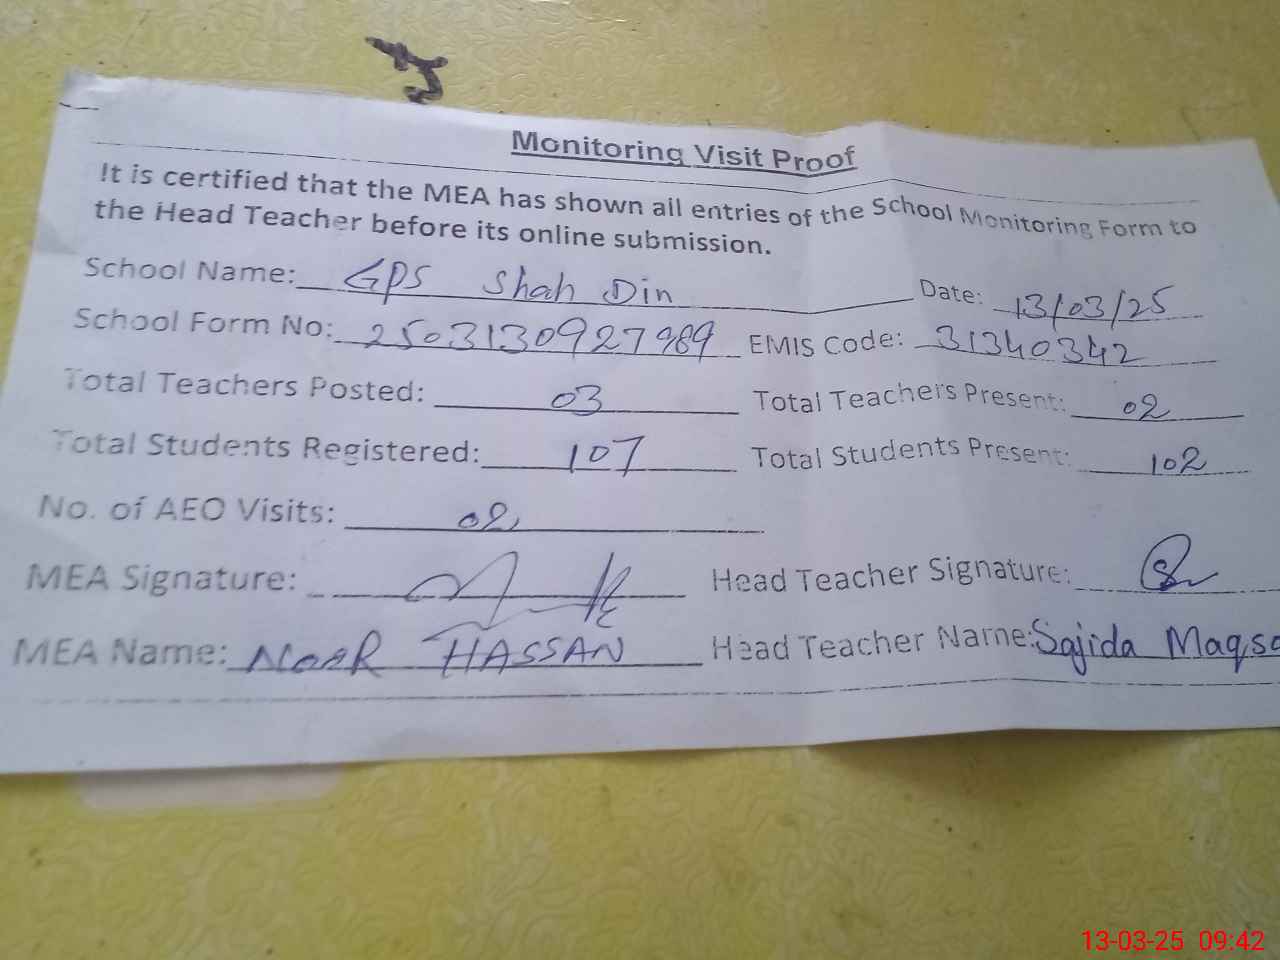 Monitoring Visit Proof
It is certified that the MEA has shown all entries of the School Monitoring Form to
the Head Teacher before its online submission.
School Name: GPS Shah Din Date: 13/03/25
School Form No: 2503130927989 EMIS Code: 31340342
Total Teachers Posted: 03 Total Teachers Present: 02
Total Students Registered: 107 Total Students Present: 102
No. of AEO Visits: 02
MEA Signature: Head Teacher Signature:
MEA Name: NOOR HASSAN Head Teacher Name: Sajida Maqso
13-03-25 09:42